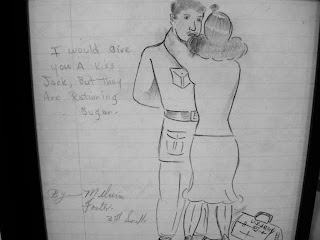 I would give
you A Kiss
Jack, But They
Are Rationing
Sugar.
By Melvin